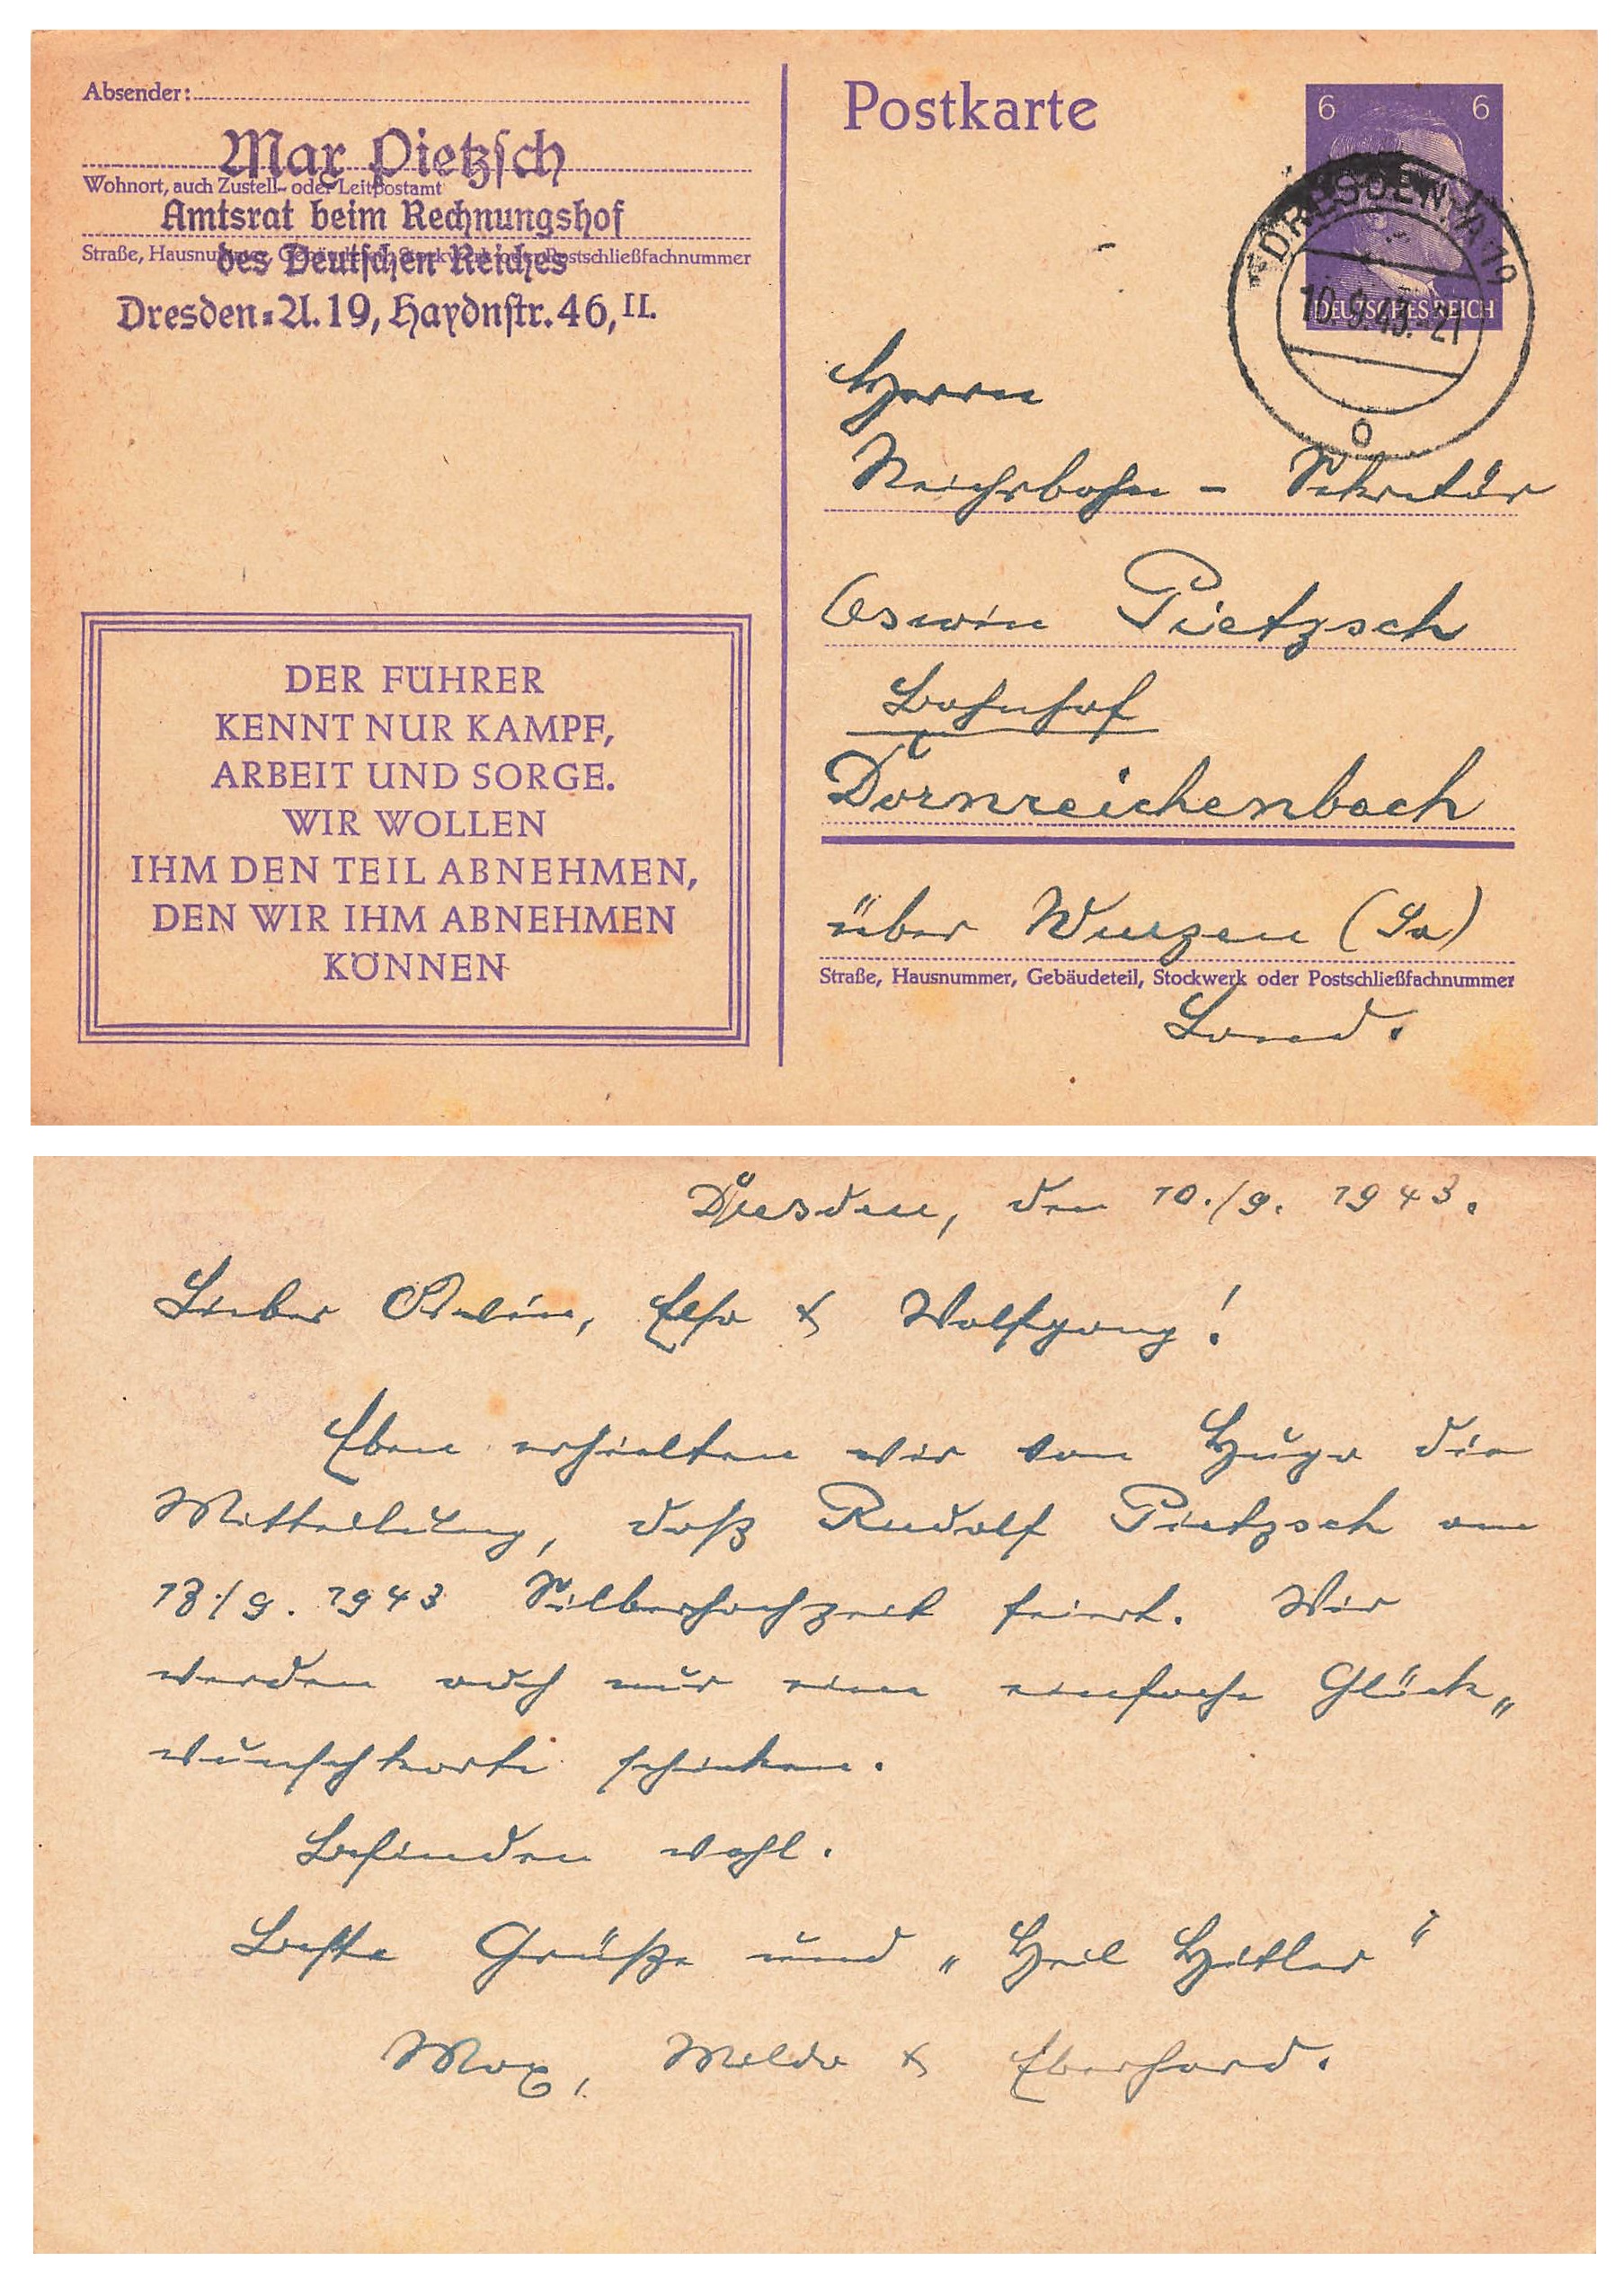 Absender:
Max Pietzsch
Wohnort, auch Zustell- oder Leitpostamt
Amtsrat beim Rechnungshof
Straße, Hausnummer, Gebäudeteil, Stockwerk oder Postschließfachnummer
des Deutschen Reiches
Dresden-A. 19, Haydnstr. 46, II.
DER FÜHRER
KENNT NUR KAMPF,
ARBEIT UND SORGE.
WIR WOLLEN
IHM DEN TEIL ABNEHMEN,
DEN WIR IHM ABNEHMEN
KÖNNEN
Postkarte
6 6
DEUTSCHES REICH
DRESDEN A 19
10.9.43.-21
o
Herrn
Reichsbahn - Sekretär
Oswin Pietzsch
Bahnhof
Dornreichenbach
über Wurzen (Sa)
Straße, Hausnummer, Gebäudeteil, Stockwerk oder Postschließfachnummer
Land.
Dresden, den 10./9. 1943.
Lieber Oswin, Elsa & Wolfgang!
Eben erhielten wir von Hugo die
Mitteilung, daß Rudolf Pietzsch am
18./9. 1943 Silberhochzeit feiert. Wir
werden auch nur eine einfache Glück„
wunschkarte schicken.
Befinden wohl.
Beste Grüße und „Heil Hitler“
Max, Milda & Eberhard.